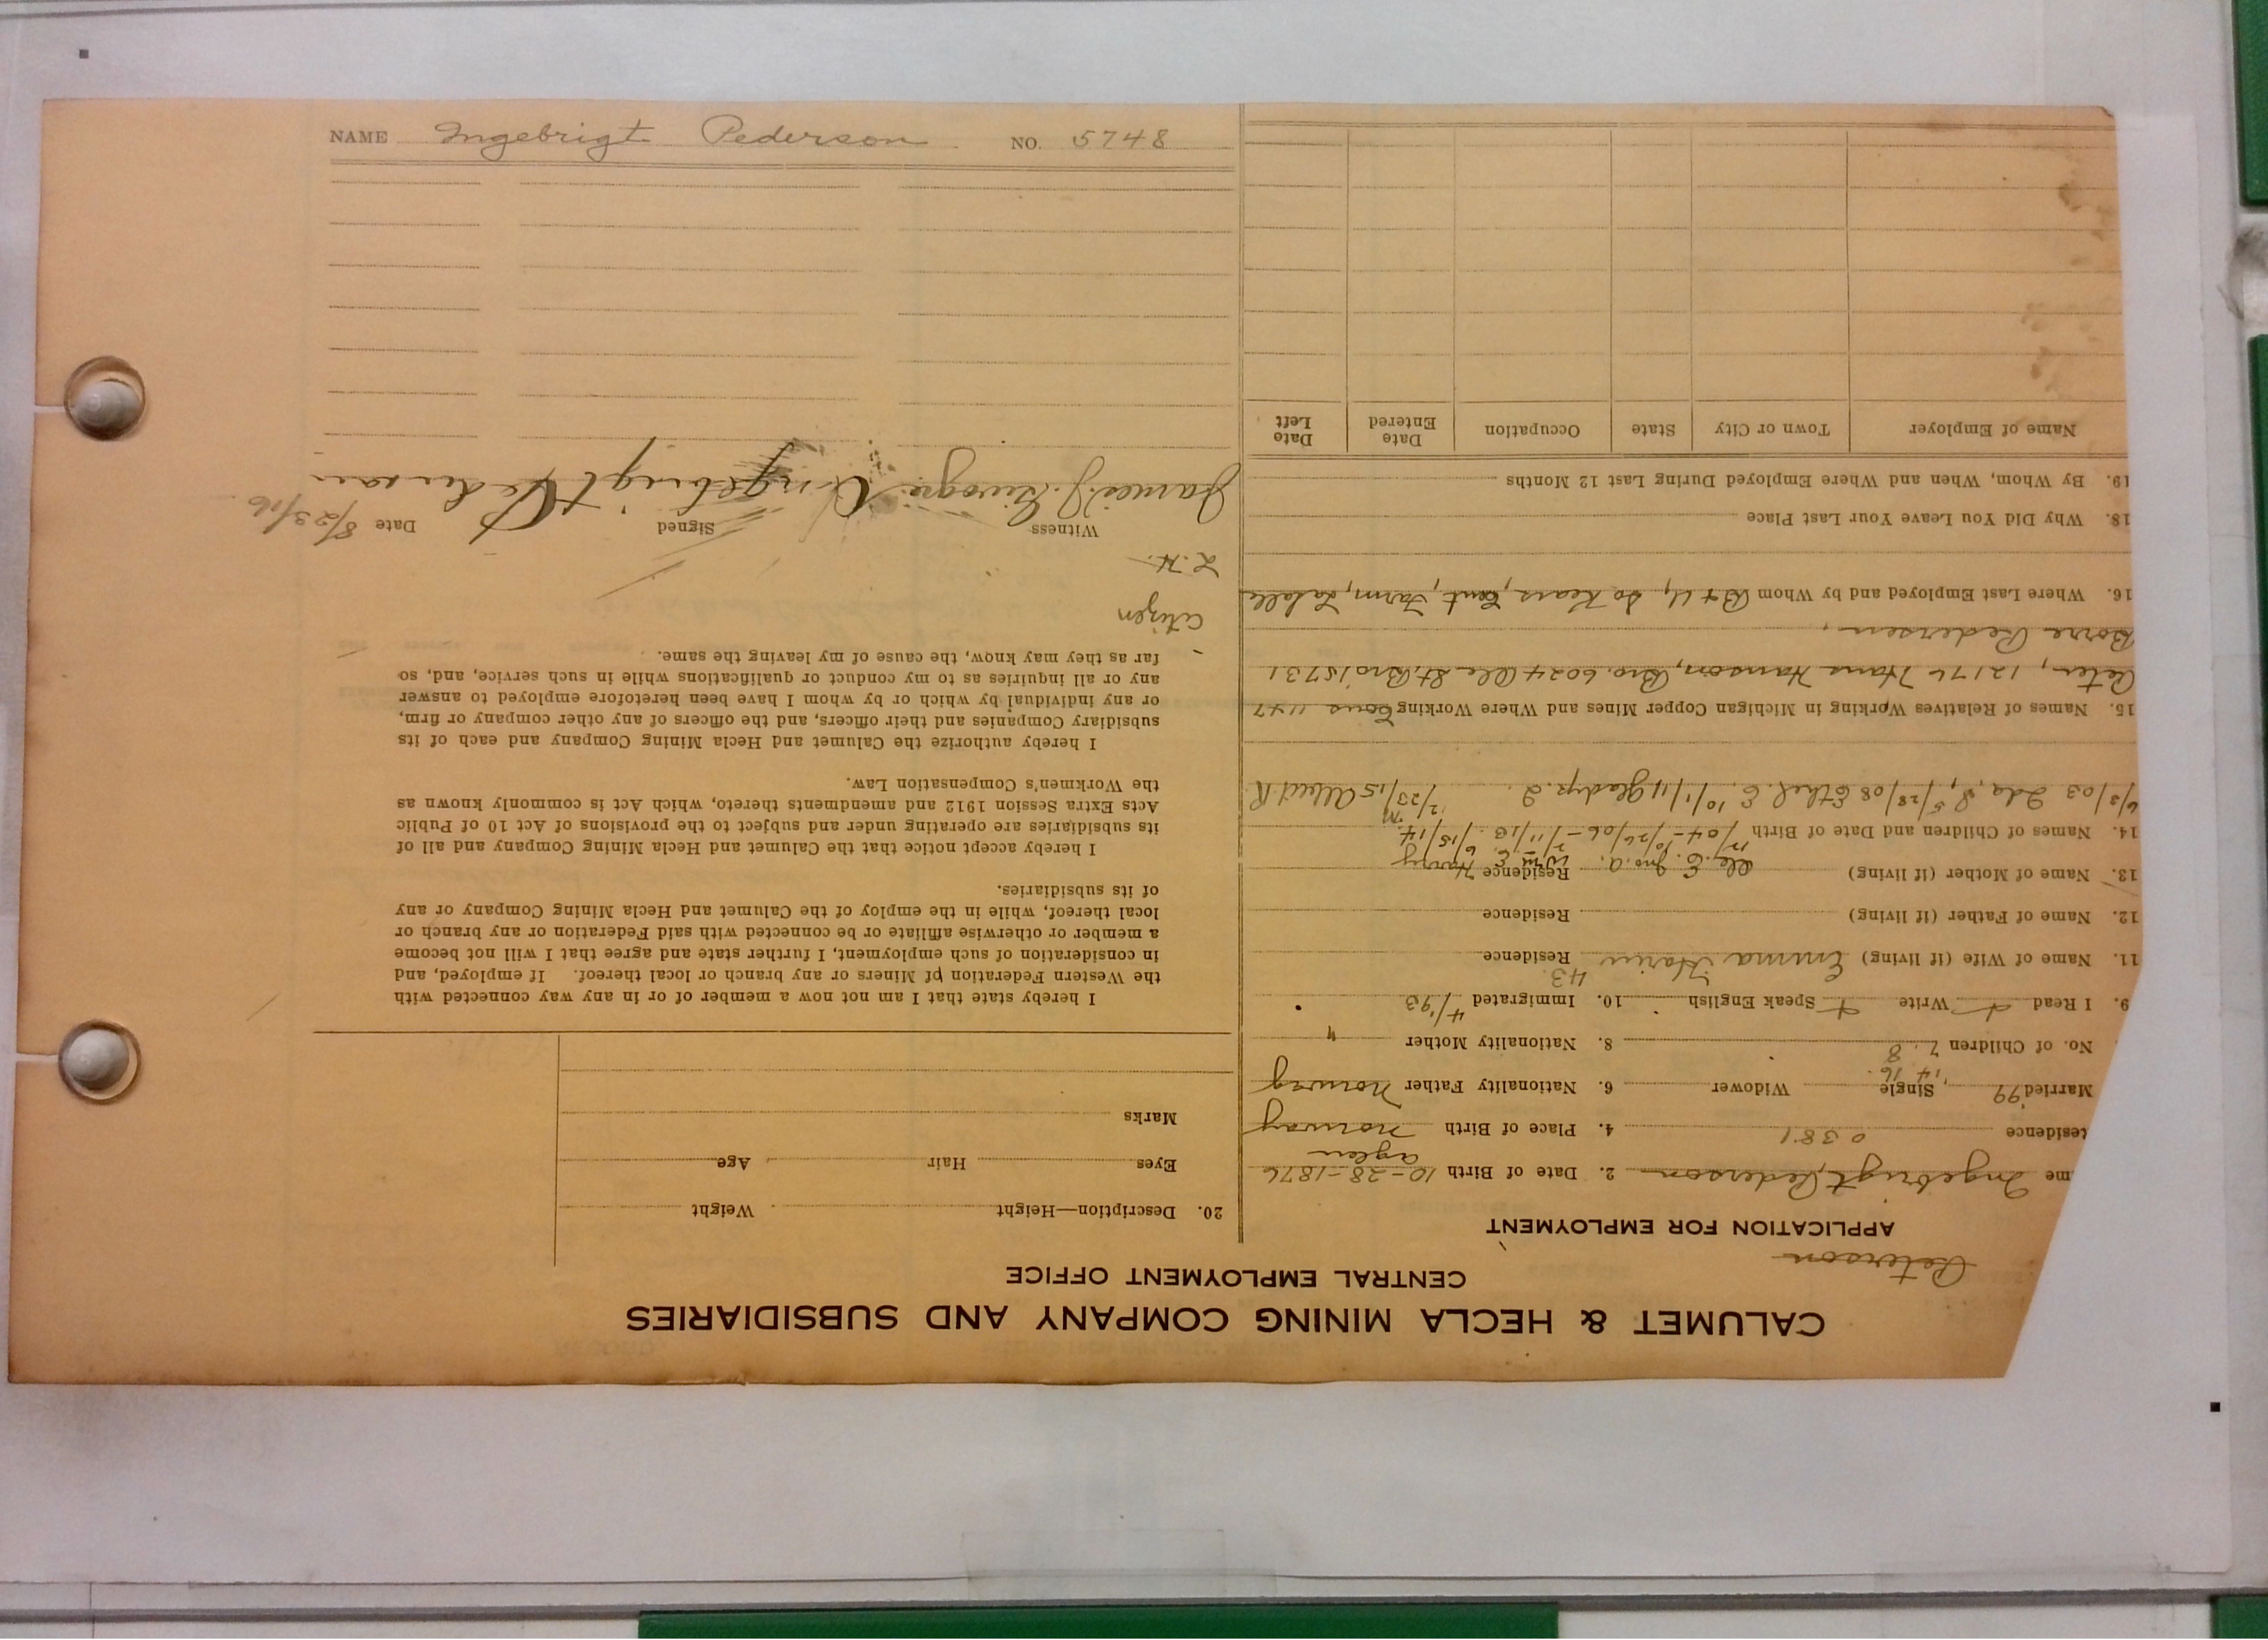 NAME Ingebrigt Pederson NO. 5748
CALUMET & HECLA MINING COMPANY AND SUBSIDIARIES
CENTRAL EMPLOYMENT OFFICE
Peterson
APPLICATION FOR EMPLOYMENT
me Ingebrigt Pederson 2. Date of Birth 10-28-1876
esidence 0381 4. Place of Birth Norway
Married '99 Single Widower 6. Nationality Father Norway
14 16
No. of Children 7 8 8. Nationality Mother "
9. I Read + Write + Speak English 10. Immigrated 4/93
43
11. Name of Wife (if living) Emma Marie Residence
12. Name of Father (if living) Residence
13. Name of Mother (if living) Residence
Jno. A. Wm E. Harry
14. Names of Children and Date of Birth
6/3/03 Ida, S, 5/28/08 Ethel E. 10/1/11 Gladys. I. 2/25/15 Albert R
15. Names of Relatives Working in Michigan Copper Mines and Where Working Cous 1147
Peter, 12176 Hans Hanson, Bro. 6024 Ole St, Bro 15731
Borre Pedersen,
16. Where Last Employed and by Whom So Kears, Cont, Farm, Lasalle
18. Why Did You Leave Your Last Place
19. By Whom, When and Where Employed During Last 12 Months
Name of Employer Town or City State Occupation Date Entered Date Left
20. Description—Height Weight
Eyes Hair Age
Marks
I hereby state that I am not now a member of or in any way connected with
the Western Federation of Miners or any branch or local thereof. If employed, and
in consideration of such employment, I further state and agree that I will not become
a member or otherwise affiliate or be connected with said Federation or any branch or
local thereof, while in the employ of the Calumet and Hecla Mining Company or any
of its subsidiaries.
I hereby accept notice that the Calumet and Hecla Mining Company and all of
its subsidiaries are operating under and subject to the provisions of Act 10 of Public
Acts Extra Session 1912 and amendments thereto, which Act is commonly known as
the Workmen's Compensation Law.
I hereby authorize the Calumet and Hecla Mining Company and each of its
subsidiary Companies and their officers, and the officers of any other company or firm,
or any individual by which or by whom I have been heretofore employed to answer
any or all inquiries as to my conduct or qualifications while in such service, and, so
far as they may know, the cause of my leaving the same.
Citizen
L.H.
Witness Signed Date 8/23/16
James J. Ingebrigt Pederson